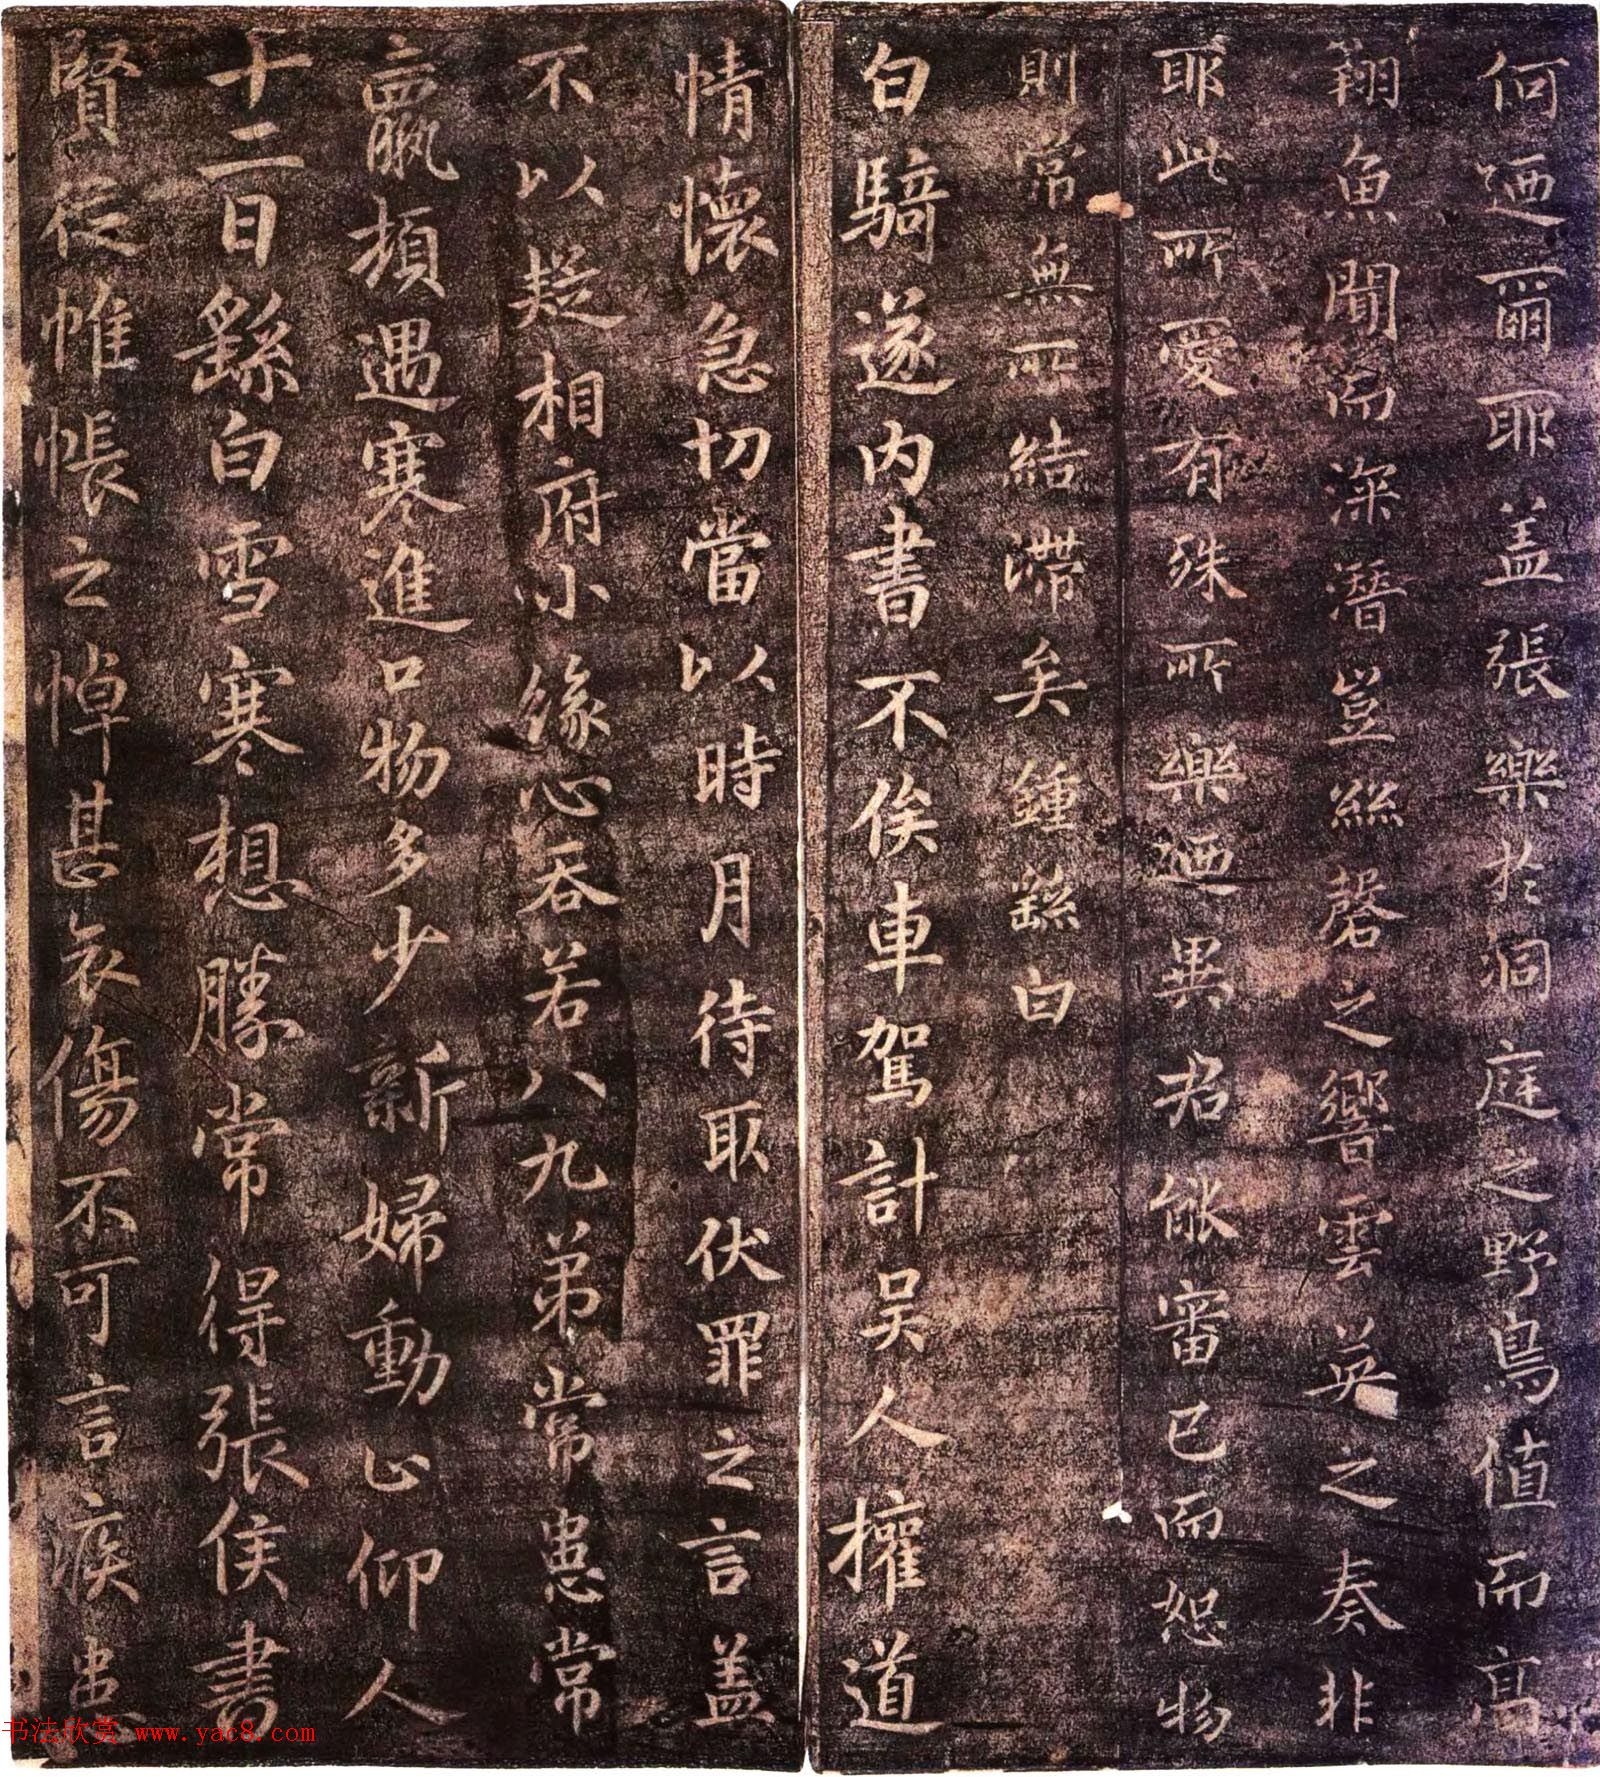 何迺爾耶盖張樂於洞庭之野鳥值而高
翔魚聞而深潛豈絲磬之響雲英之奏非
耶此所愛有殊所樂迺異君能審己而恕物
則常無所結滯矣鍾繇白
白騎遂內書不俟車駕計吳人權道
情懷急切當以時月待取伏罪之言盖
不以疑相府小緣心吞若八九弟常患常
羸頓遇寒進口物多少新婦動止仰人
十二日繇白雪寒想勝常得張侯書
賢從帷帳之悼甚哀傷不可言疾患
书法欣赏 www.yac8.com